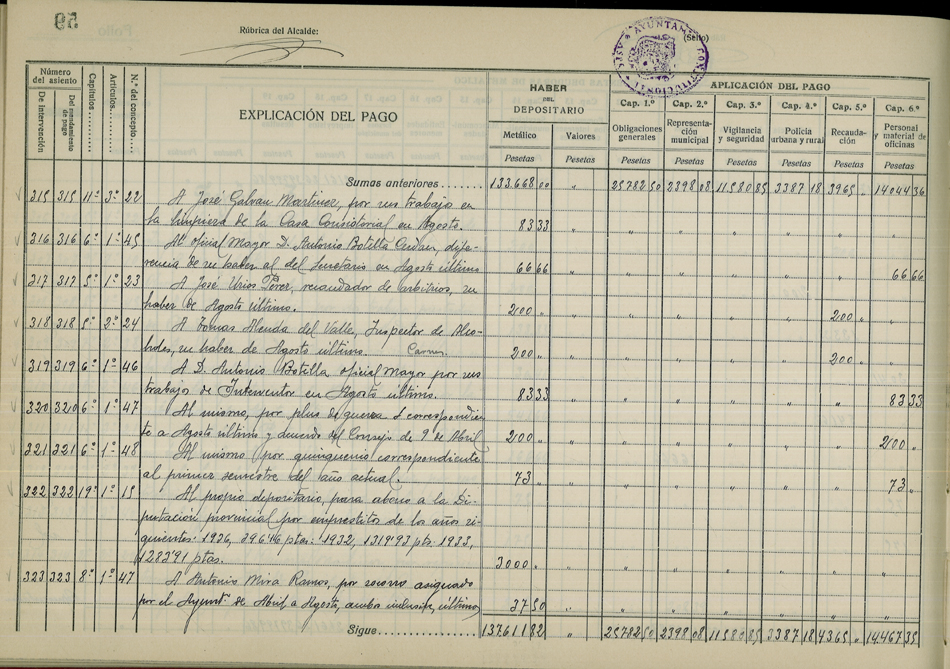 Rúbrica del Alcalde:
(Sello)
AYUNTAM CONSTITUCIONAL
Número del asiento
De intervención
Del mandamiento de pago
Capítulos
Artículos
N.º del concepto
EXPLICACIÓN DEL PAGO
HABER DEL DEPOSITARIO
Metálico
Valores
Pesetas
Pesetas
APLICACIÓN DEL PAGO
Cap. 1.º Cap. 2.º Cap. 3.º Cap. 4.º Cap. 5.º Cap. 6.º
Obligaciones generales
Representación municipal
Vigilancia y seguridad
Policía urbana y rural
Recaudación
Personal y material de oficinas
Pesetas Pesetas Pesetas Pesetas Pesetas Pesetas
Sumas anteriores....... 133.668 00 " 25782 50 2398 08 11580 85 3387 18 3965 " 14044 36
315 315 11º 3º 22 A José Galvan Martinez, por sus trabajo en
la limpieza de la Casa Consistorial en Agosto. 83 33 " " " " " " "
316 316 6º 1º 45 Al Oficial Mayor D. Antonio Botella, dife-
rencia de su haber al del Secretario en Agosto último 66 66 " " " " " " 66 66
317 317 5º 1º 23 A José Urios Pérez, recaudador de arbitrios, su
haber de Agosto último. 200 " " " " " " 200 " "
318 318 5º 2º 24 A Tomas del Valle, Inspector de Alco-
holes, su haber de Agosto último. Carnes. 200 " " " " " " 200 " "
319 319 6º 1º 46 A D. Antonio Botella Oficial Mayor por sus
trabajos de Interventor en Agosto último. 83 33 " " " " " " 83 33
320 320 6º 1º 47 Al mismo, por plus de guerra correspondien
te a Agosto último y acuerdo del Consejo de 9 de Abril 200 " " " " " " " 200 "
321 321 6º 1º 48 Al mismo por quinquenio correspondiente
al primer semestre del año actual. 73 " " " " " " " 73 "
322 322 19º 1º 15 Al propio depositario, para abono a la Di-
putación provincial por empréstitos de los años si-
guientes: 1936, 396'16 ptas: 1932, 1319'93 pts. 1933,
1283'91 ptas. 3000 " " " " " " " "
323 323 8º 1º 47 A Antonio Mira Ramos, por socorro asignado
por el Ayuntº. de Abril a Agosto, ambos inclusive, último, 37 50 " " " " " " "
Sigue................. 137.611 82 " 25782 50 2398 08 11580 85 3387 18 4365 " 14.467 35